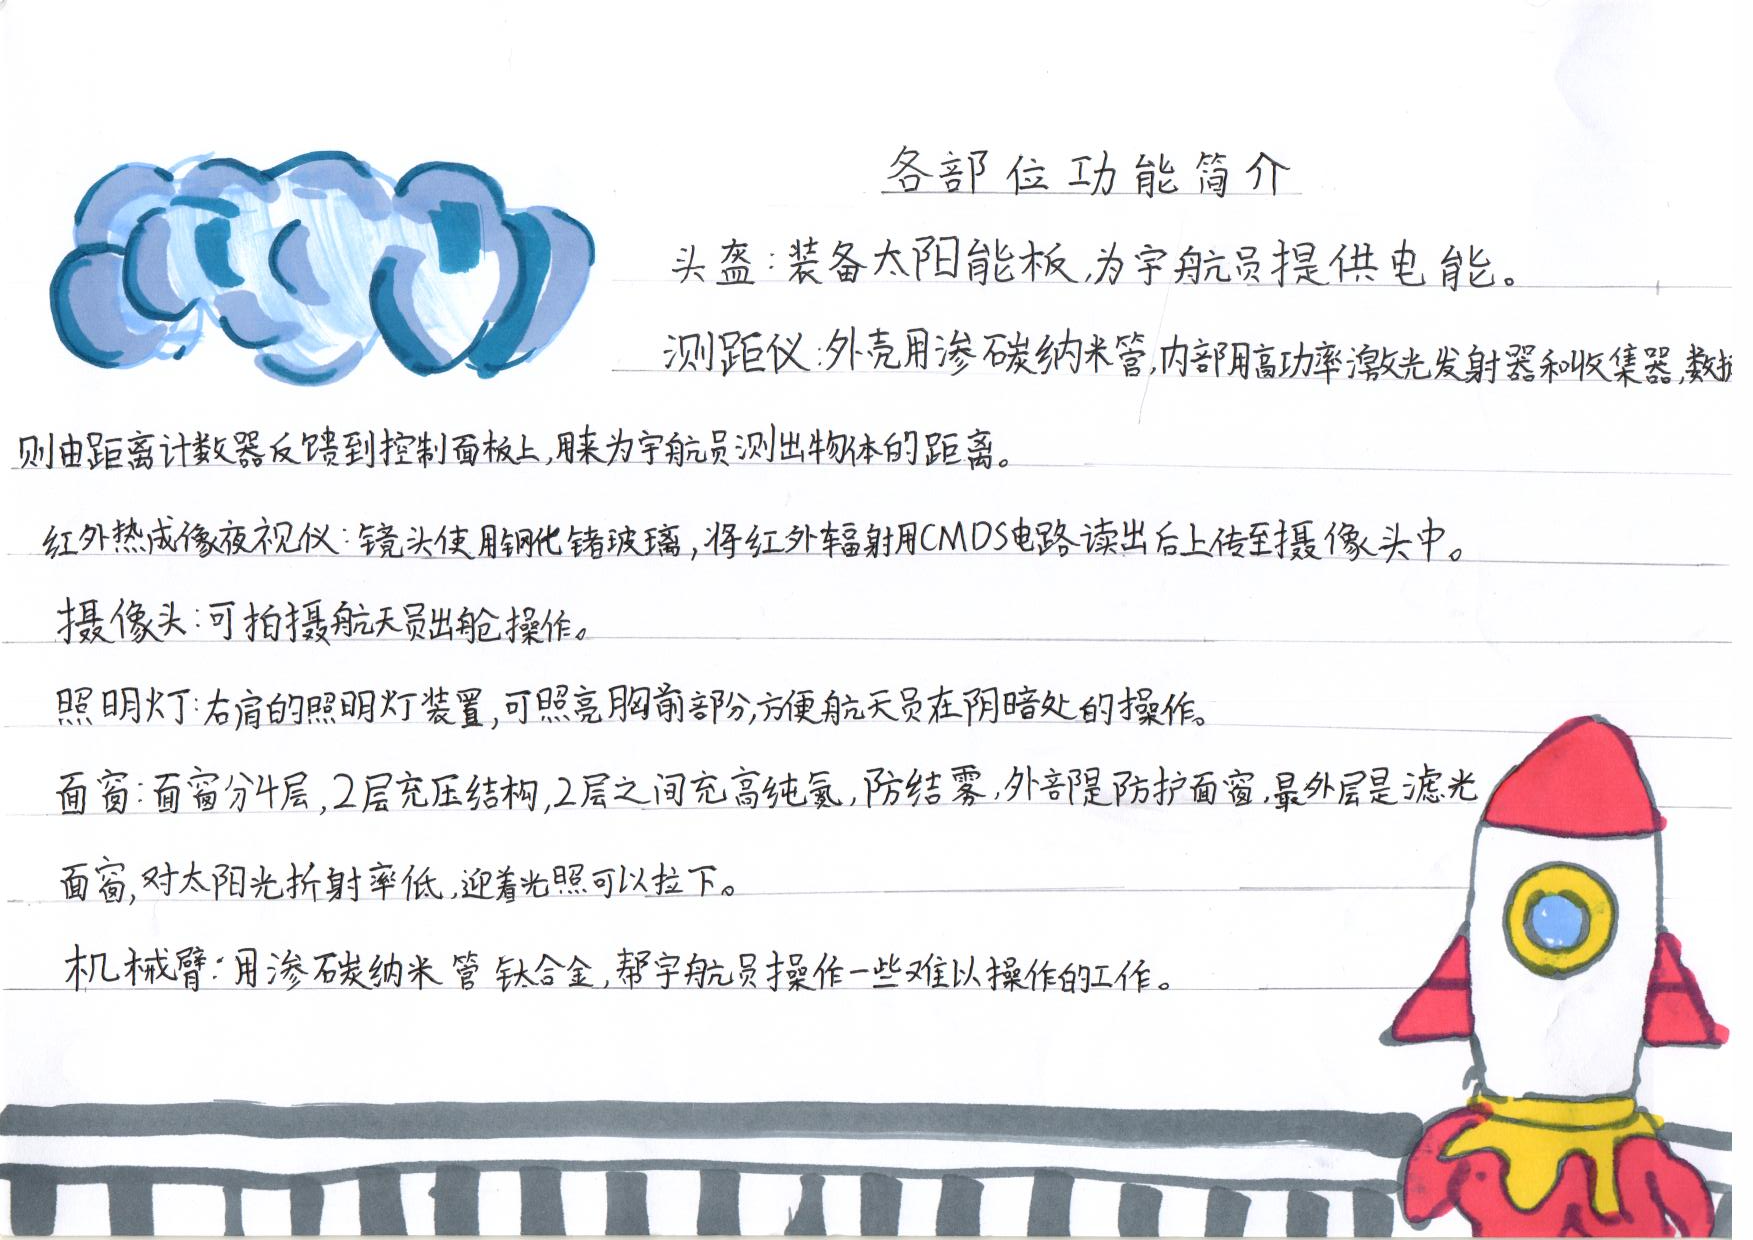 各部位功能简介
头盔:装备太阳能板,为宇航员提供电能。
测距仪:外壳用渗碳纳米管,内部用高功率激光发射器和收集器,数据
则由距离计数器反馈到控制面板上,用来为宇航员测出物体的距离。
红外热成像夜视仪:镜头使用钢化锗玻璃,将红外辐射用CMOS电路读出后上传至摄像头中。
摄像头:可拍摄航天员出舱操作。
照明灯:右肩的照明灯装置,可照亮胸前部分,方便航天员在阴暗处的操作。
面窗:面窗分4层,2层充压结构,2层之间充高纯氮,防结雾,外部是防护面窗,最外层是滤光
面窗,对太阳光折射率低,迎着光照可以拉下。
机械臂:用渗碳纳米管钛合金,帮宇航员操作一些难以操作的工作。